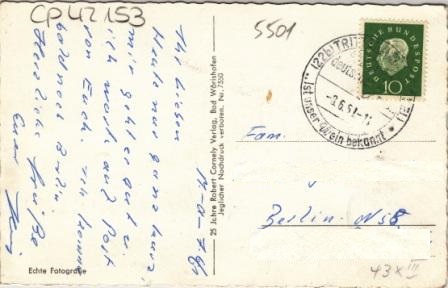 CP 42 153
5501
Ihr Lieben
Heute nur ganz kurz,
mir geht es gut.
ich warte auf Post
von Euch. ich komme
bald nach Berlin
Herzliche Grüße
Euer
25 Jahre Robert Cornely Verlag, Bad Wörishofen
Jeglicher Nachdruck verboten. Nr. 7550
Echte Fotografie
(22b) TRI
..ist unser Wein bekannt
DEUTSCHE BUNDESPOST
10
Fam.
Berlin
43 x III